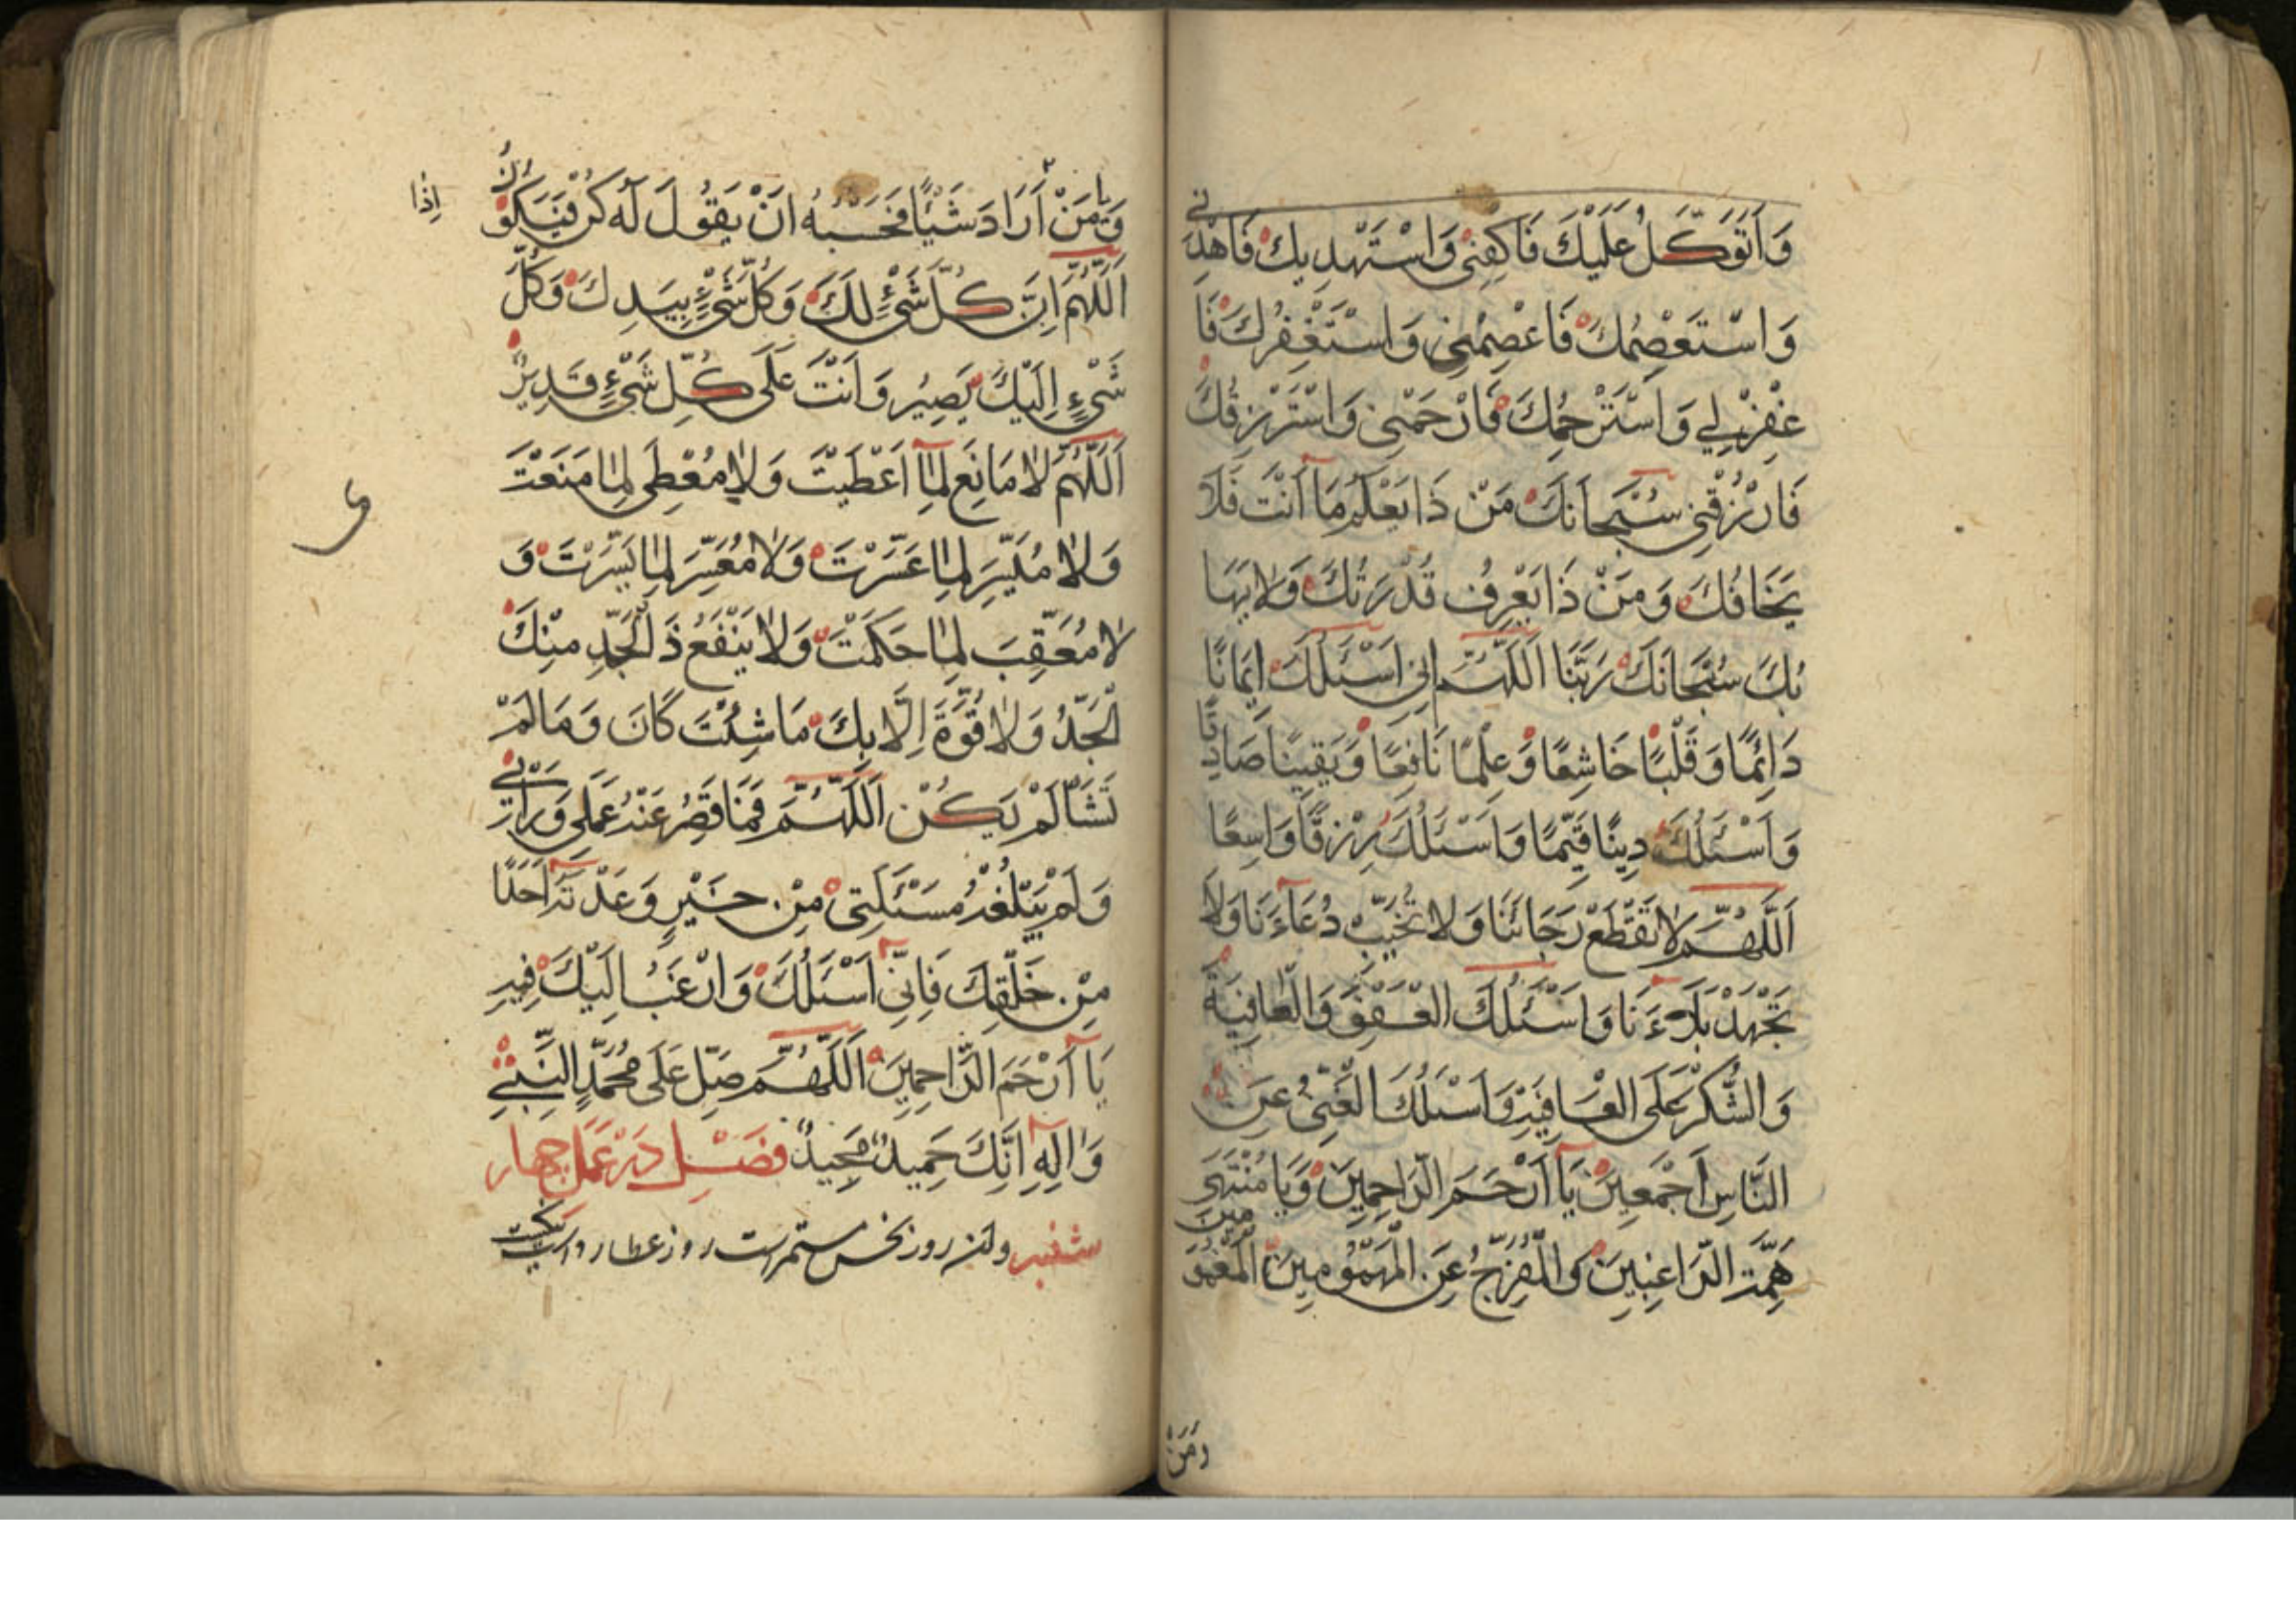 وَاَتَوَكَّلُ عَلَيْكَ فَاكْفِنِىْ وَاسْتَهْدِيكَ فَاهْدِنِى
وَاسْتَعْصِمُكَ فَاعْصِمْنِى وَاسْتَغْفِرُكَ فَا
غْفِرْلِى وَاسْتَرْحِمُكَ فَارْحَمْنِى وَاسْتَرْزِقُكَ
فَارْزُقْنِى سُبْحَانَكَ مَنْ ذَا يَعْلَمُ مَا اَنْتَ فَلَا
يَخَافُكَ وَمَنْ ذَا يَعْرِفُ قُدْرَتَكَ وَلَا يَهَا
بُكَ سُبْحَانَكَ رَبَّنَا اَللّٰهُمَّ اِنِّى اَسْئَلُكَ اِيمَانًا
دَائِمًا وَقَلْبًا خَاشِعًا وَعِلْمًا نَافِعًا وَيَقِينًا صَادِقًا
وَاَسْئَلُكَ دِينًا قَيِّمًا وَاَسْئَلُكَ رِزْقًا وَاسِعًا
اَللّٰهُمَّ لَا تَقْطَعْ رَجَائَنَا وَلَا تُخَيِّبْ دُعَآءَنَا وَلَا
تَجْهَدْ بَلَآءَنَا وَاَسْئَلُكَ الْعَفْوَ وَالْعَافِيَةَ
وَالشُّكْرَ عَلَى الْعَافِيَةِ وَاَسْئَلُكَ الْغِنىٰ عَنِ
النَّاسِ اَجْمَعِينَ يَآ اَرْحَمَ الرَّاحِمِينَ وَيَا مُنْتَهىٰ
هِمَّةِ الرَّاغِبِينَ وَالْمُفَرِّجُ عَنِ الْمَهْمُومِينَ الْمَغْمُومِينَ
وَمَنْ
وَيَا مَنْ اَرَادَ شَيْئًا فَحَسْبُهُ اَنْ يَقُولَ لَهُ كُنْ فَيَكُونُ
اِذَا
اَللّٰهُمَّ اِنَّ كُلَّ شَىْءٍ لَكَ وَكُلَّ شَىْءٍ بِيَدِكَ وَكُلَّ
شَىْءٍ اِلَيْكَ يَصِيرُ وَاَنْتَ عَلَى كُلِّ شَىْءٍ قَدِيرٌ
اَللّٰهُمَّ لَا مَانِعَ لِمَآ اَعْطَيْتَ وَلَا مُعْطِىَ لِمَا مَنَعْتَ
وَلَا مُيَسِّرَ لِمَا عَسَّرْتَ وَلَا مُعَسِّرَ لِمَا يَسَّرْتَ وَ
لَا مُعَقِّبَ لِمَا حَكَمْتَ وَلَا يَنْفَعُ ذَالْجَدِّ مِنْكَ
الْجَدُّ وَلَا قُوَّةَ اِلَّا بِكَ مَا شِئْتَ كَانَ وَمَا لَمْ
تَشَأْ لَمْ يَكُنْ اَللّٰهُمَّ فَمَا قَصُرَ عَنْهُ عَمَلِى وَرَائِى
وَلَمْ يَبْلُغْهُ مَسْئَلَتِى مِنْ خَيْرٍ وَعَدْتَهُ اَحَدًا
مِنْ خَلْقِكَ فَاِنِّى اَسْئَلُكَ وَارْغَبُ اِلَيْكَ فِيهِ
يَآ اَرْحَمَ الرَّاحِمِينَ اَللّٰهُمَّ صَلِّ عَلَى مُحَمَّدٍ النَّبِىِّ
وَاٰلِهِ اِنَّكَ حَمِيدٌ مَجِيدٌ فَصْلِ دَرْ عَمَلِ چهار
شنبه واين روز نحس مستمر است روز عطارد است